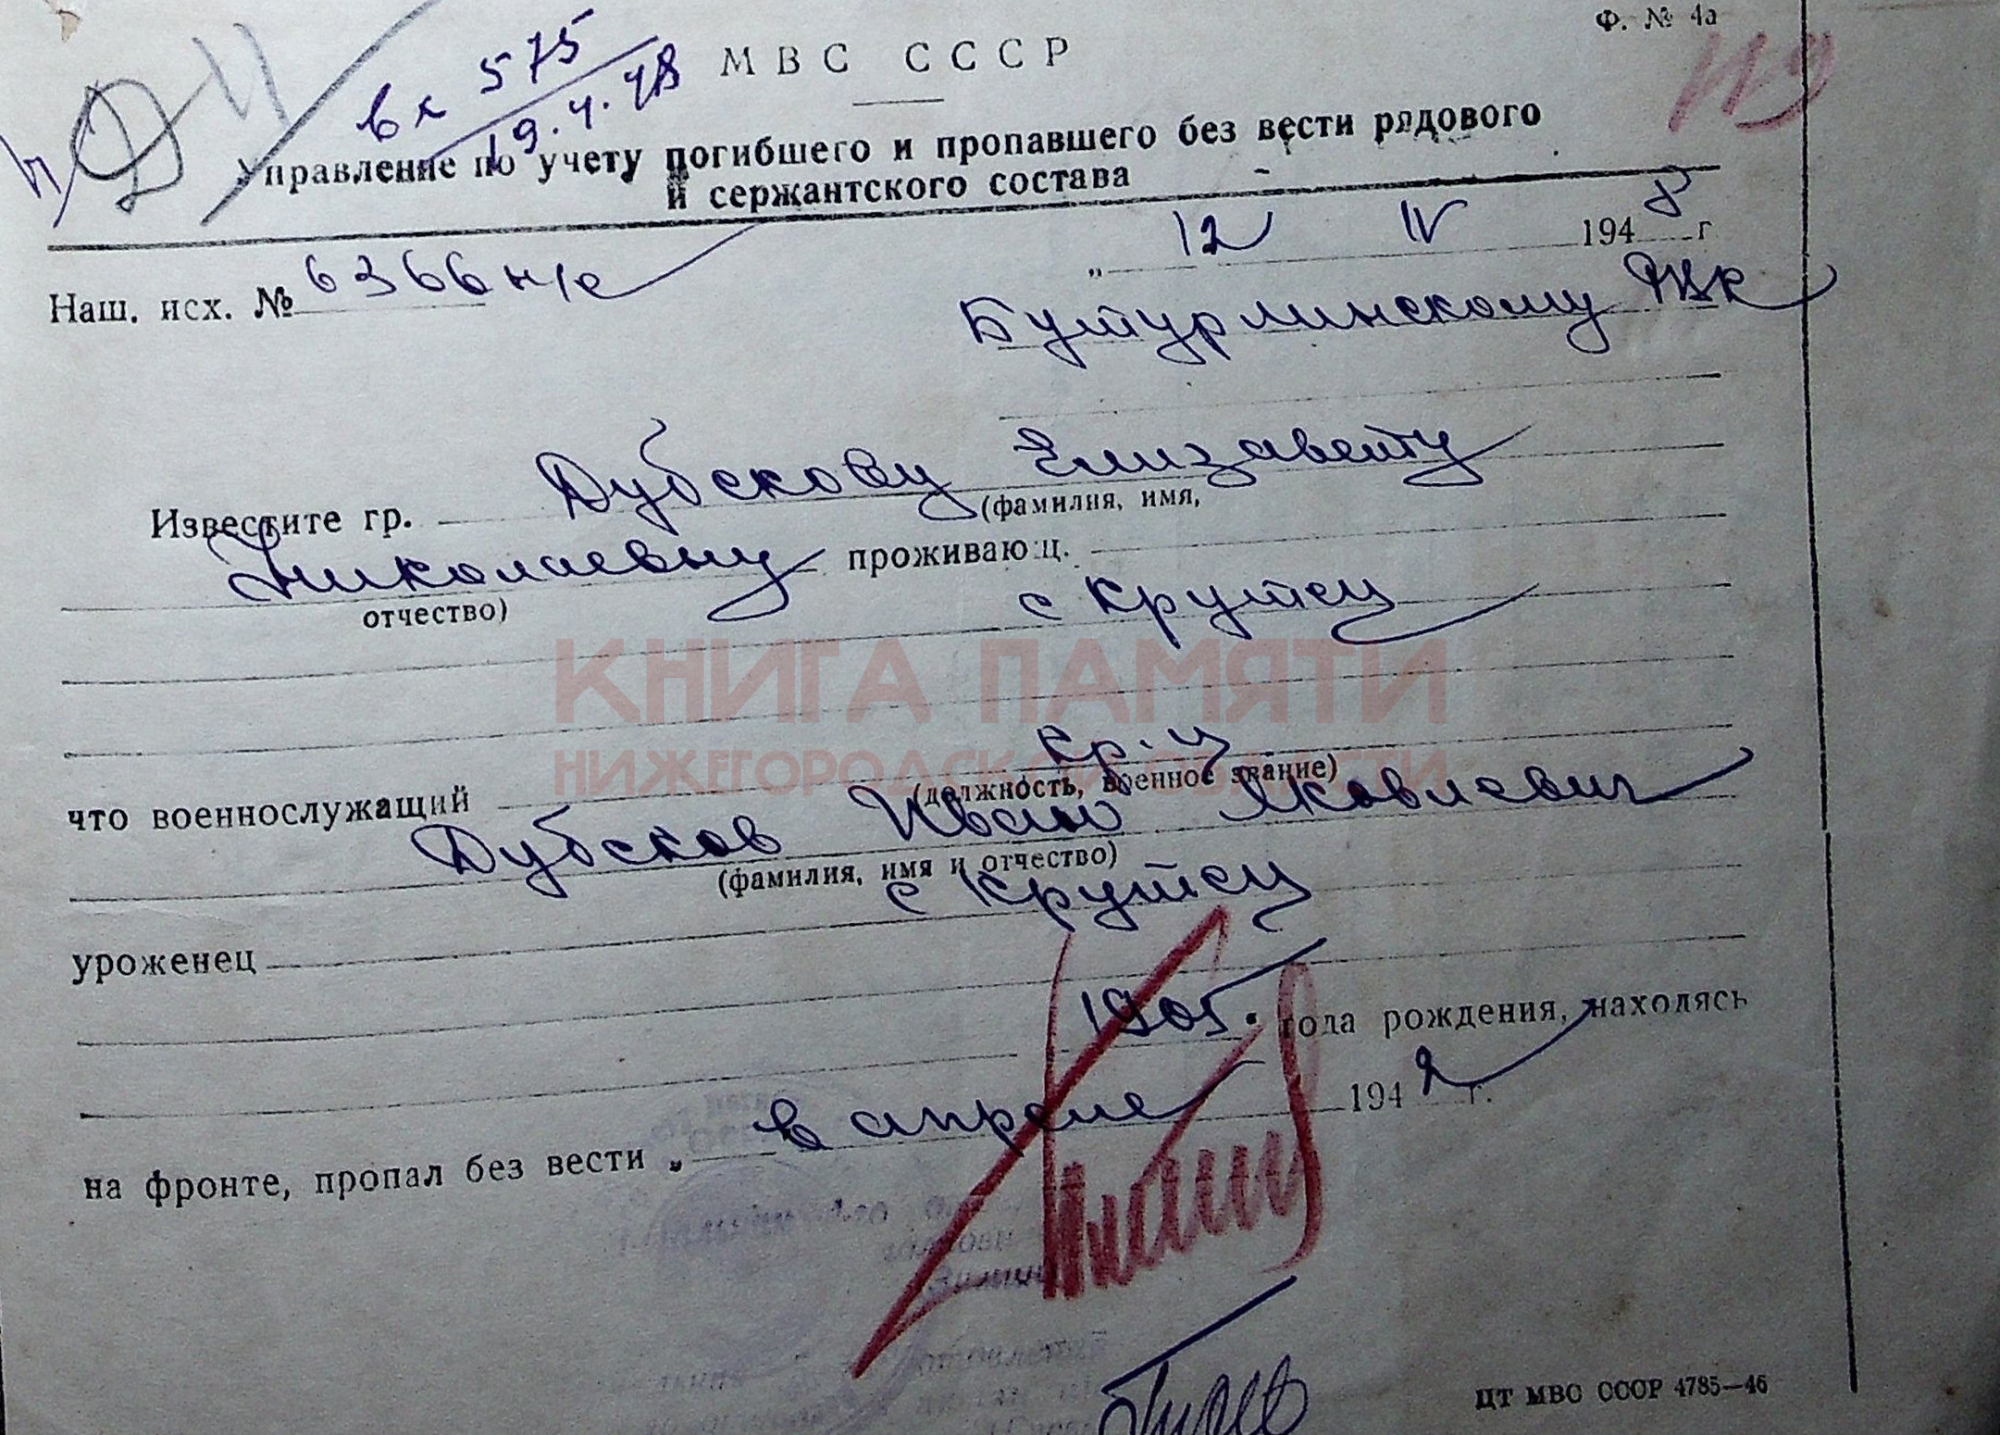 Ф. № 4а
вх 575
19.4.48
МВС СССР
Управление по учету погибшего и пропавшего без вести рядового
и сержантского состава
„ 12 IV 1948 г
Наш. исх. № 6366 н/с
Бутурлинскому РВК
Известите гр. Дубскову Елизавету
(фамилия, имя,
Николаевну проживающ.
отчество)
с Крутец
КНИГА ПАМЯТИ
НИЖЕГОРОДСКОЙ ОБЛАСТИ
что военнослужащий кр-ц
(должность, военное звание)
Дубсков Иван Яковлевич
(фамилия, имя и отчество)
уроженец с Крутец
1905. года рождения, находясь
на фронте, пропал без вести „ в апреле 1942 г.
ЦТ МВС СССР 4785—46